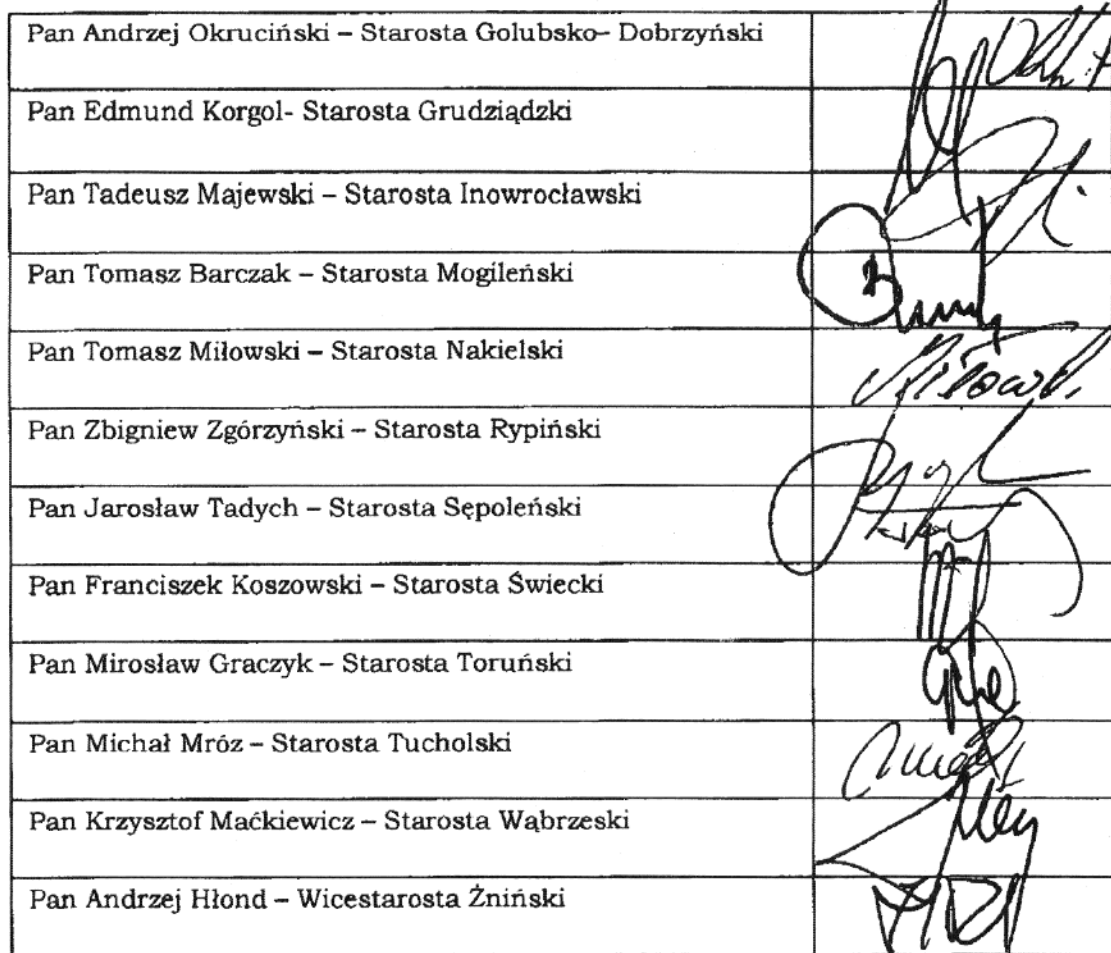 Pan Andrzej Okruciński – Starosta Golubsko– Dobrzyński
Pan Edmund Korgol- Starosta Grudziądzki
Pan Tadeusz Majewski – Starosta Inowrocławski
Pan Tomasz Barczak – Starosta Mogileński
Pan Tomasz Miłowski – Starosta Nakielski
Pan Zbigniew Zgórzyński – Starosta Rypiński
Pan Jarosław Tadych – Starosta Sępoleński
Pan Franciszek Koszowski – Starosta Świecki
Pan Mirosław Graczyk – Starosta Toruński
Pan Michał Mróz – Starosta Tucholski
Pan Krzysztof Maćkiewicz – Starosta Wąbrzeski
Pan Andrzej Hłond – Wicestarosta Żniński